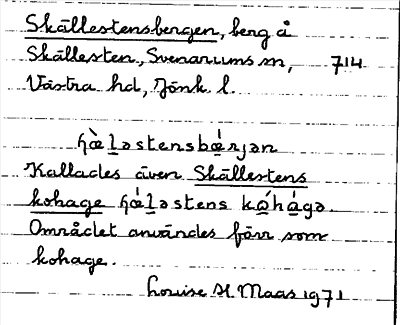 Skällestensbergen, berg å
Skällesten, Svenarums sn, 714
Västra hd, Jönk l.
ɧὰḷəstensbǽrjən
Kallades även Skällestens
kohage ɧáḷəstens kǫ́hą́gə.
Området användes förr som
kohage.
Louise H. Maas 1971